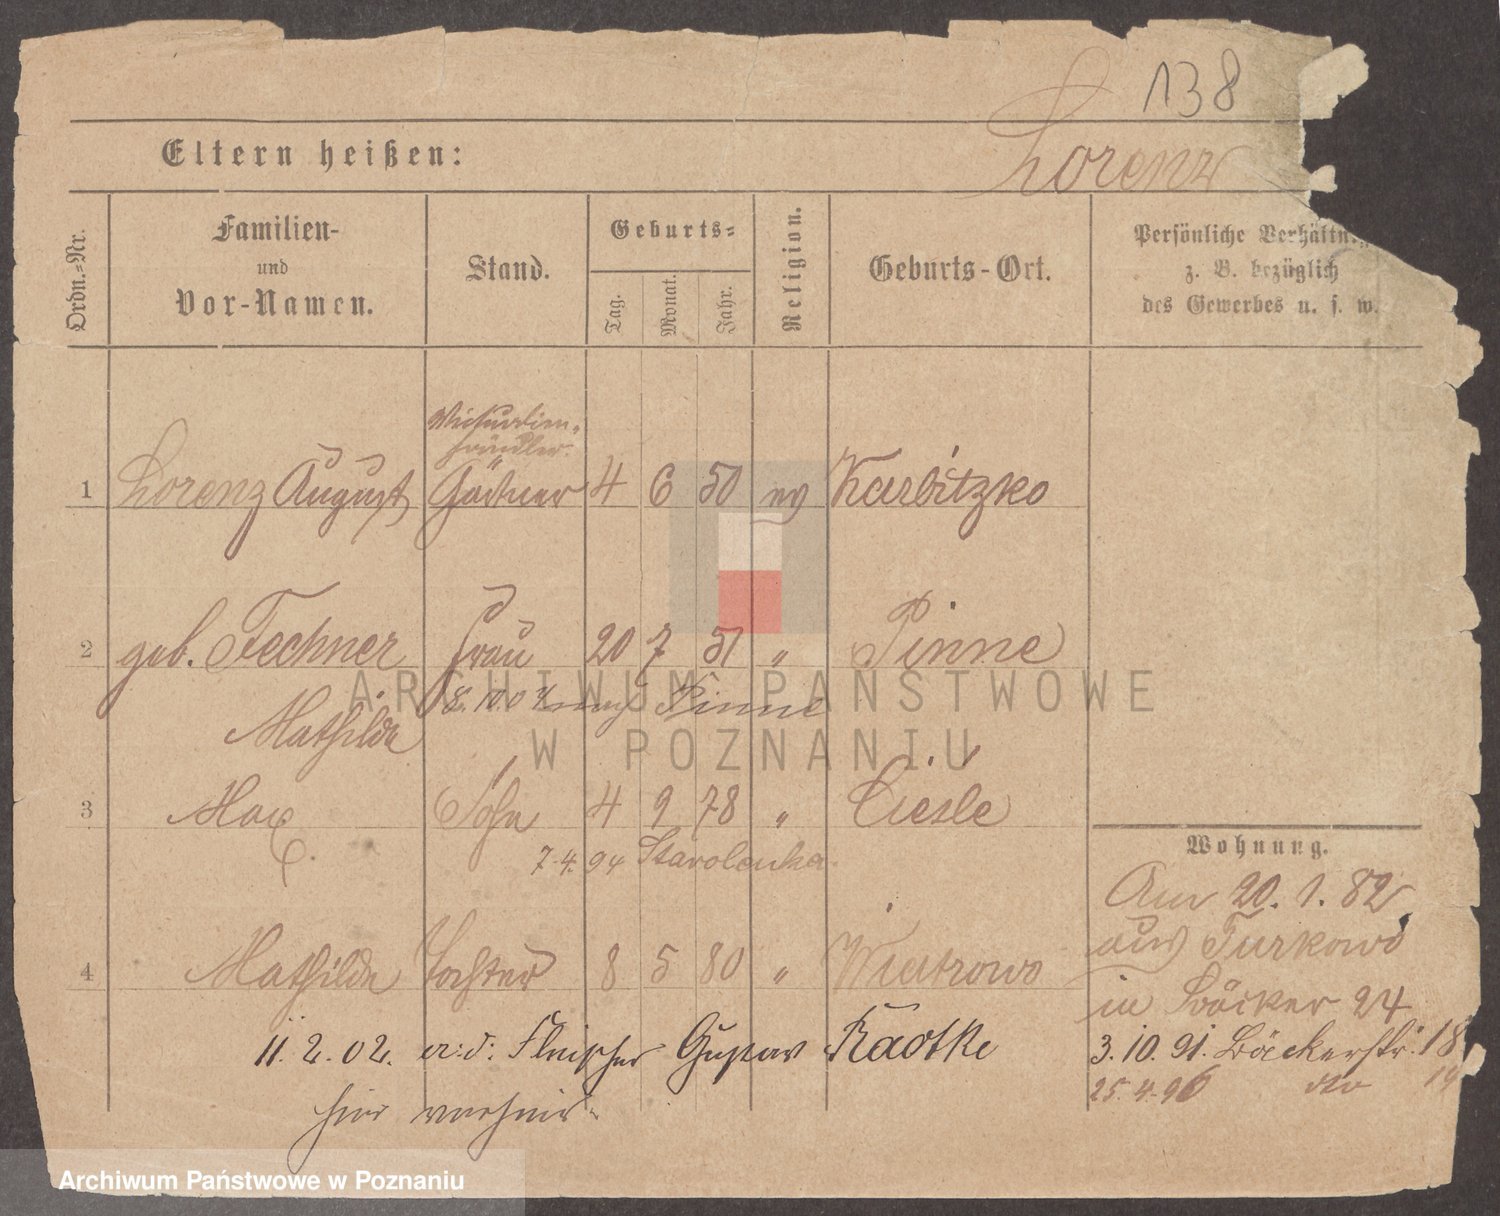 138
Eltern heißen: Lorenz
Ordn.-Nr.
Familien- und Vor-Namen.
Stand.
Geburts-
Tag. Monat. Jahr.
Religion.
Geburts-Ort.
Persönliche Verhältn
z. B. bezüglich
des Gewerbes u. s. w.
Victualien-
händler.
1 Lorenz August Gärtner 4 6 50 ev Karbitzko
2 geb. Fechner Frau 20 7 51 " Pinne
Mathilde 8.10.04 nach Pinne
3 Max Sohn 4 9 78 " Ciesle
7.4.94 Starolenka
4 Mathilde Tochter 8 5 80 " Wiatrowo
11.2.02. a.d. Fleischer Gustav Radtke
hier verheir.
Wohnung.
Am 20.1.82
aus Turkowo
in Bäcker 24
3.10.91. Bäckerstr. 18
25.4.96 dto 19
ARCHIWUM PAŃSTWOWE
W POZNANIU
Archiwum Państwowe w Poznaniu